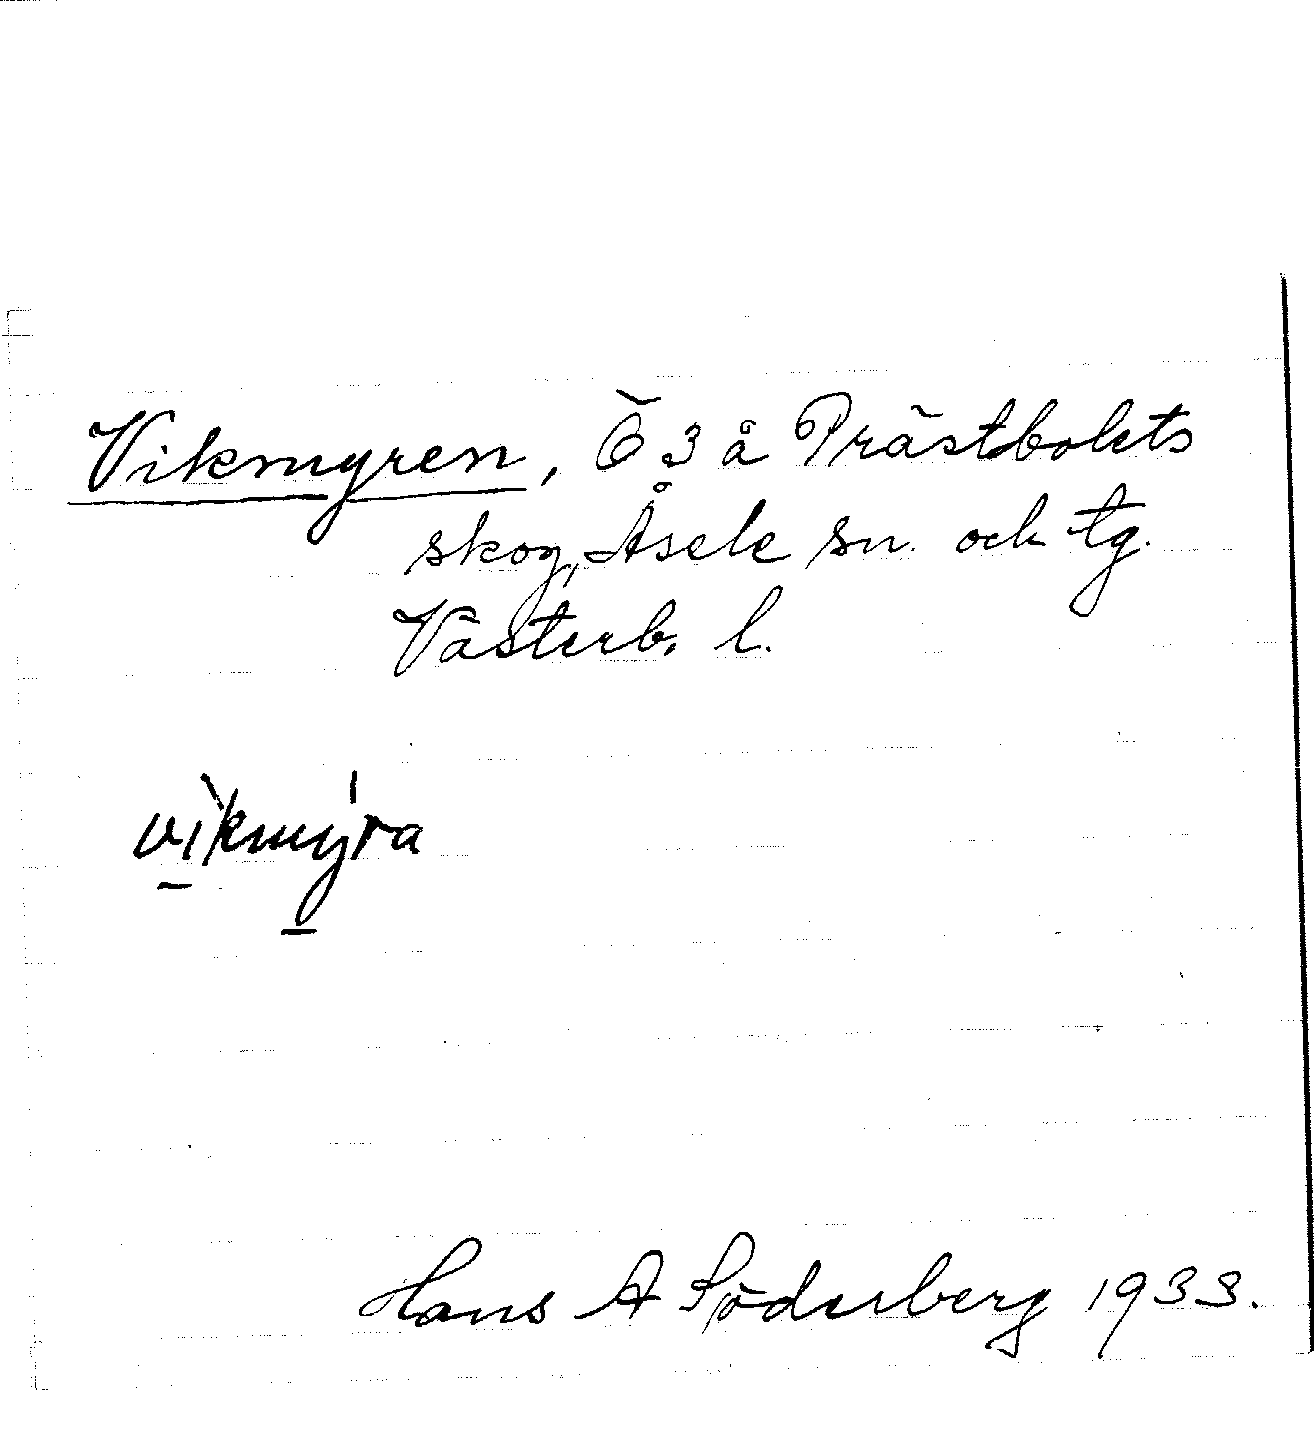 Vikmyren, Ö 3 å Prästbolets
skog, Åsele sn. och tg.
Västerb. l.
vìkmýra
Hans A Söderberg 1933.